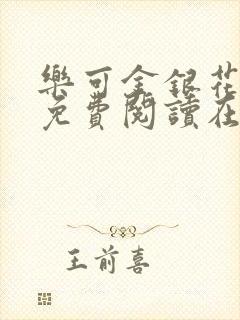 樂可金銀花
免費閱讀在
王前喜